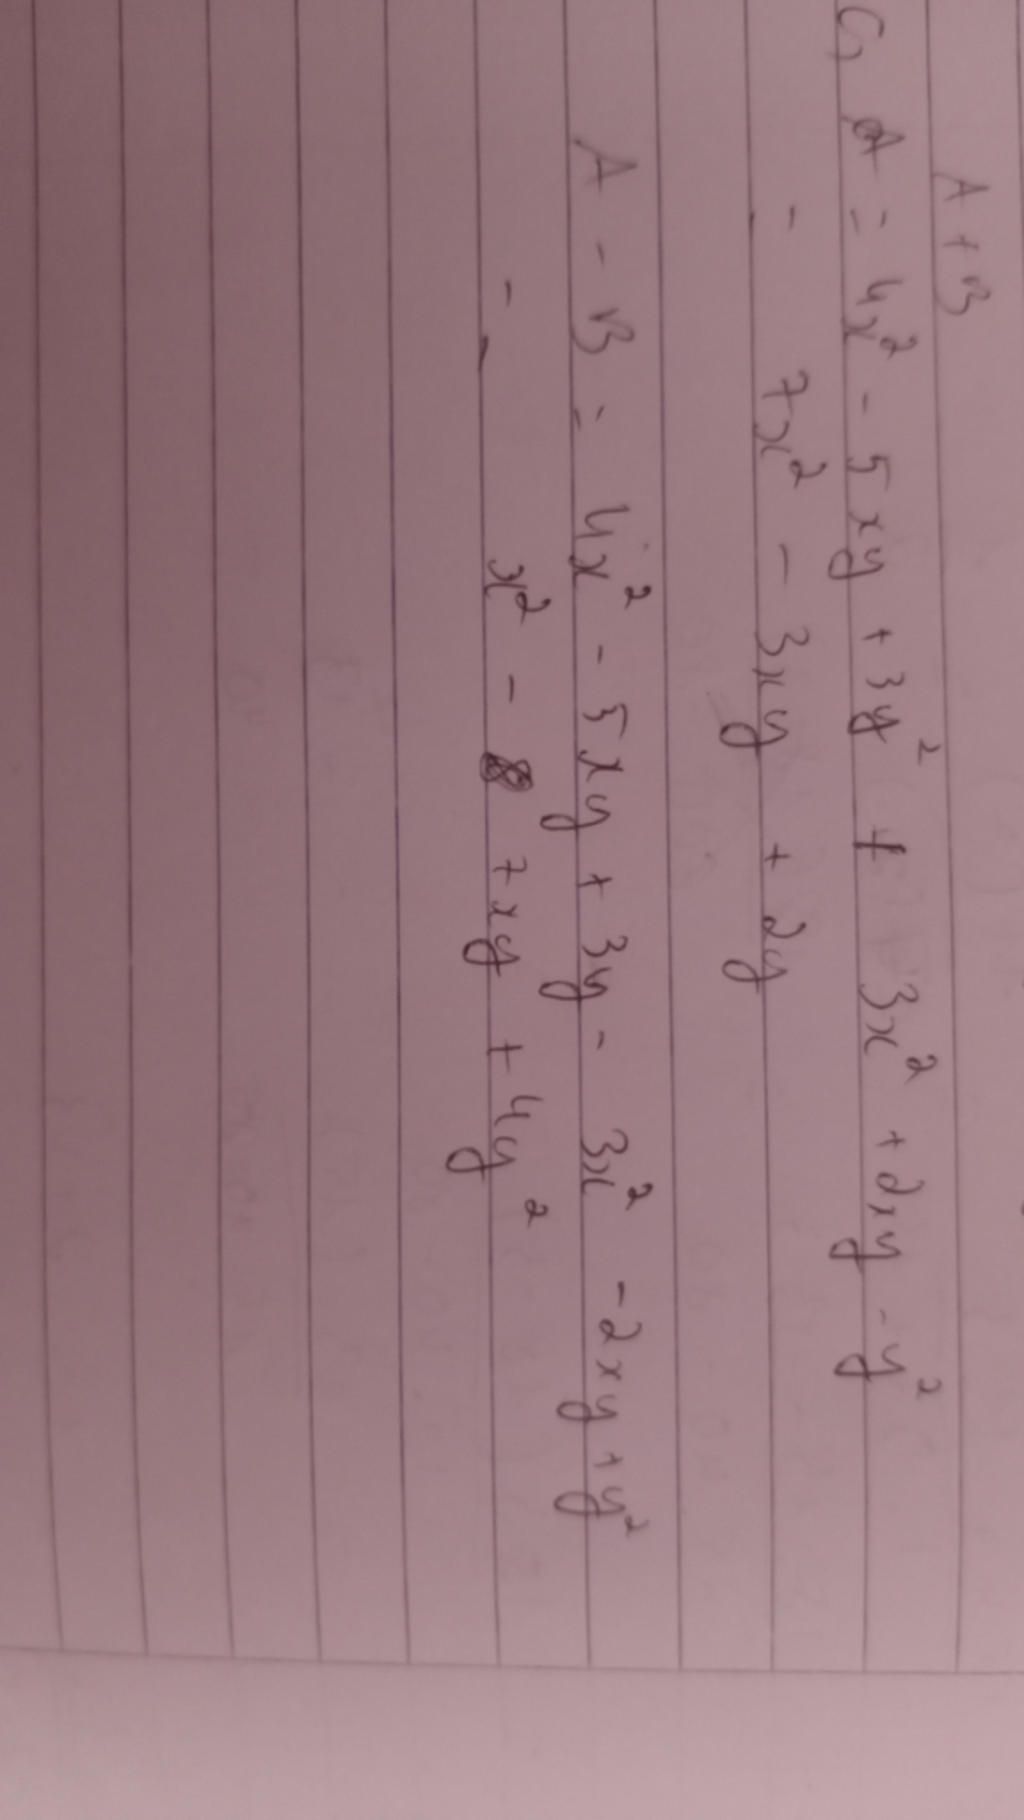 A + B
C, A = 4x² - 5xy + 3y² + 3x² + 2xy - y²
= 7x² - 3xy + 2y
A - B = 4x² - 5xy + 3y - 3x² - 2xy + y²
= x² - 7xy + 4y²